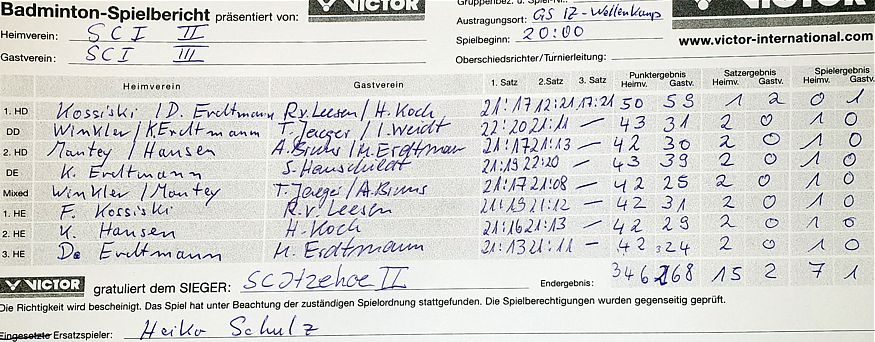 Badminton-Spielbericht präsentiert von: VICTOR
Austragungsort: GS IZ-Wellenkamp
Heimverein: SCI II
Spielbeginn: 20:00
www.victor-international.com
Gastverein: SCI III
Oberschiedsrichter/Turnierleitung:
Heimverein Gastverein 1. Satz 2.Satz 3. Satz Punktergebnis Satzergebnis Spielergebnis
Heimv. Gastv. Heimv. Gastv. Heimv. Gastv.
1. HD Kossiski / D. Erdtmann R.v.Leesen / H. Koch 21:17 12:21 17:21 50 59 1 2 0 1
DD Winkler / K Erdtmann T. Jaeger / I. Weidt 22:20 21:11 — 43 31 2 0 1 0
2. HD Mantey / Hansen A. Bruns / M. Erdtman 21:17 21:13 — 42 30 2 0 1 0
DE K. Erdtmann S. Hauschildt 21:19 22:20 — 43 39 2 0 1 0
Mixed Winkler / Mantey T. Jaeger / A. Bruns 21:17 21:08 — 42 25 2 0 1 0
1. HE F. Kossiski R.v. Leesen 21:19 21:12 — 42 31 2 0 1 0
2. HE K. Hansen H. Koch 21:16 21:13 — 42 29 2 0 1 0
3. HE D. Erdtmann M. Erdtmann 21:13 21:11 — 42 24 2 0 1 0
VICTOR gratuliert dem SIEGER: SC Itzehoe II Endergebnis: 346 268 15 2 7 1
Die Richtigkeit wird bescheinigt. Das Spiel hat unter Beachtung der zuständigen Spielordnung stattgefunden. Die Spielberechtigungen wurden gegenseitig geprüft.
Eingesetzte Ersatzspieler: Heiko Schulz